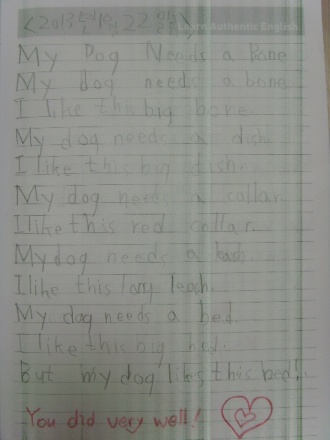 <2013년 1월 22일>
Learn Authentic English
My Dog Needs a Bone
My dog needs a bone.
I like this big bone.
My dog needs a dish.
I like this big dish.
My dog needs a collar.
I like this red collar.
My dog needs a leash.
I like this long leach.
My dog needs a bed.
I like this big bed.
But my dog likes this bed!
You did very well!